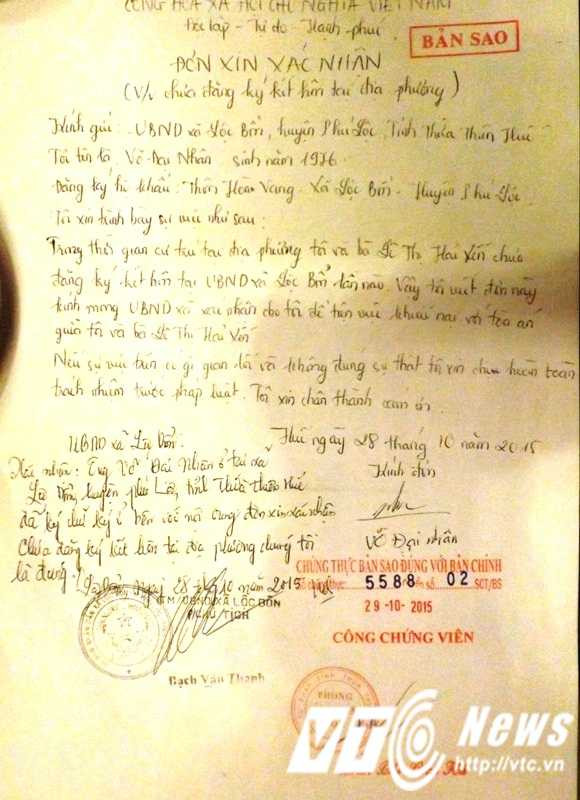 CỘNG HÒA XÃ HỘI CHỦ NGHĨA VIỆT NAM
Độc lập - Tự do - Hạnh phúc
BẢN SAO
ĐƠN XIN XÁC NHẬN
(V/v chưa đăng ký kết hôn tại địa phương)
Kính gửi: UBND xã Lộc Bổn, huyện Phú Lộc, Tỉnh Thừa Thiên Huế
Tôi tên là: Võ Đại Nhân sinh năm 1976.
Đăng ký hộ khẩu: Thôn Hòa Vang - Xã Lộc Bổn - Huyện Phú Lộc.
Tôi xin trình bày sự việc như sau:
Trong thời gian cư trú tại địa phương tôi và bà Lê Thị Hai chưa
đăng ký kết hôn tại UBND xã Lộc Bổn lần nào. Vậy tôi viết đơn này
kính mong UBND xã xác nhận cho tôi để tiện việc khiếu nại với tòa án
giữa tôi và bà Lê Thị Hai
Nếu sự việc trên có gì gian dối và không đúng sự thật tôi xin chịu hoàn toàn
trách nhiệm trước pháp luật. Tôi xin chân thành cám ơn.
Huế ngày 28 tháng 10 năm 2015
Kính đơn
Võ Đại Nhân
UBND xã Lộc Bổn.
Xác nhận: Ông Võ Đại Nhân ở tại xã
Lộc Bổn, huyện Phú Lộc, tỉnh Thừa Thiên Huế
đã ký chữ ký ở trên với nội dung đơn xin xác nhận
Chưa đăng ký kết hôn tại địa phương chúng tôi
là đúng.
Ngày 28 10 năm 2015
TM/UBND XÃ LỘC BỔN
CHỦ TỊCH
Bạch Văn Thanh
CHỨNG THỰC BẢN SAO ĐÚNG VỚI BẢN CHÍNH
Số chứng thực: 5588 Quyển số 02 SCT/BS
29-10-2015
CÔNG CHỨNG VIÊN
PHÒNG
VTC News
http://vtc.vn